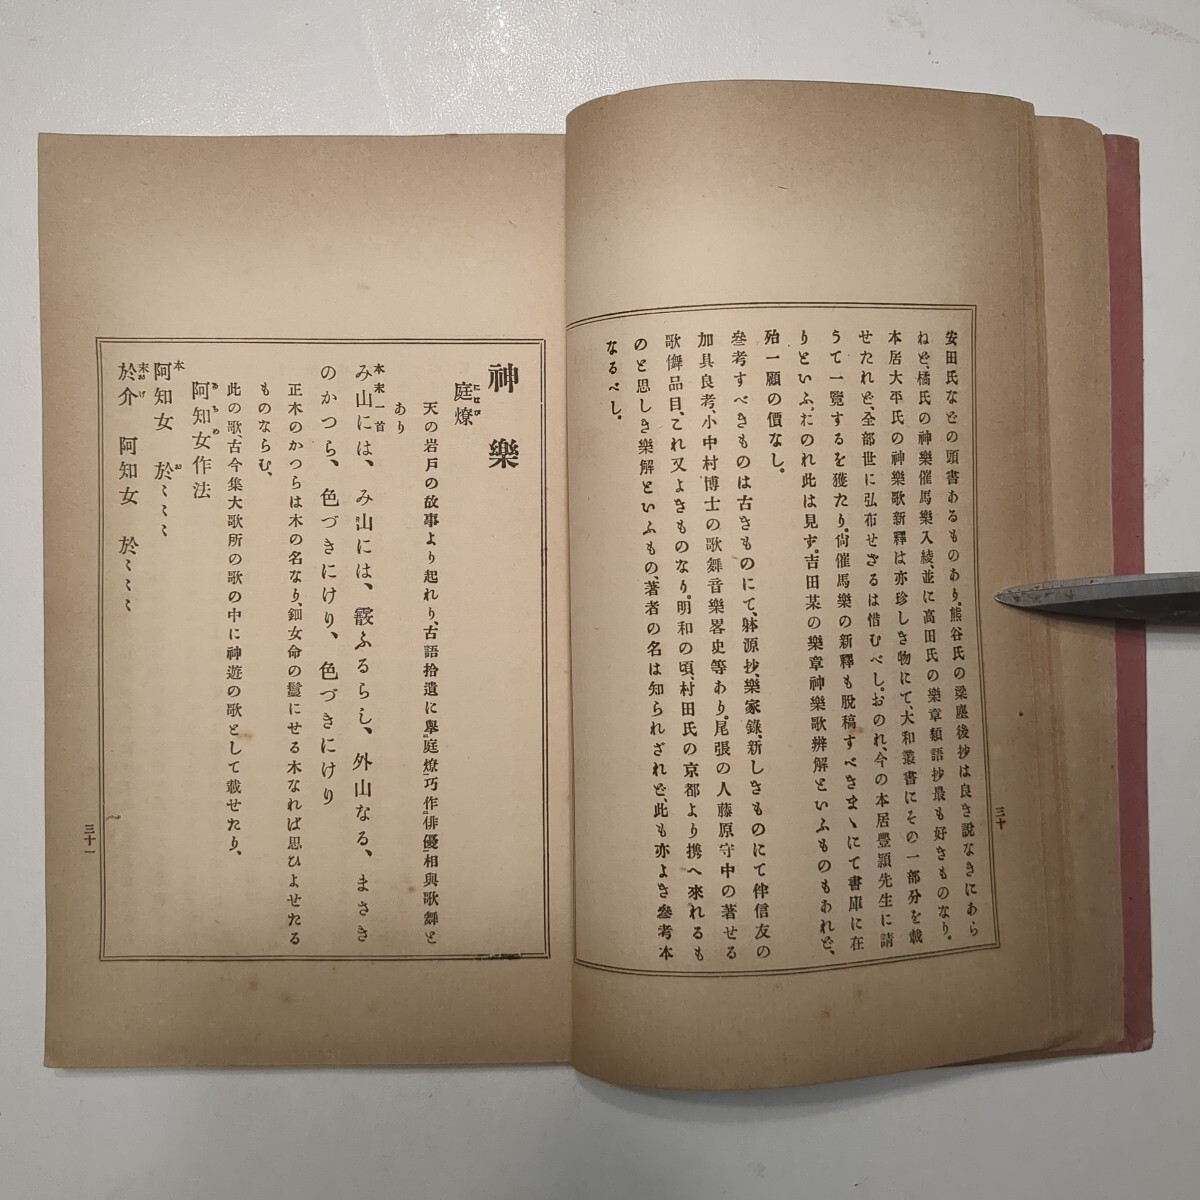 安田氏などの頭書あるものあり。熊谷氏の梁塵後抄は良き說なきにあら
ねど、橘氏の神樂催馬樂入綾、並に高田氏の樂章類語抄最も好きものなり。
本居大平氏の神樂歌新釋は亦珍しき物にて、大和叢書にその一部分を載
せたれど、全部世に弘布せざるは惜むべし。おのれ、今の本居豐穎先生に請
うて一覽するを獲たり。尙催馬樂の新釋も脫稿すべきまゝにて書庫に在
りといふ。おのれ此は見ず。吉田某の樂章神樂歌辨解といふものもあれど、
殆一顧の價なし。
參考すべきものは古きものにて、躰源抄、樂家錄、新しきものにて伴信友の
加具良考、小中村博士の歌舞音樂畧史等あり。尾張の人藤原守中の著せる
歌儛品目、これ又よきものなり。明和の頃、村田氏の京都より携へ來れるも
のと思しき樂解といふもの、著者の名は知られざれど、此も亦よき參考本
なるべし。
三十
神樂
庭燎
にはび
天の岩戶の故事より起れり、古語拾遺に擧庭燎巧作俳優相與歌舞と
あり
本末一首
み山には、み山には、霰ふるらし、外山なる、まさき
のかつら、色づきにけり、色づきにけり
正木のかつらは木の名なり、鈿女命の鬘にせる木なれば思ひよせたる
ものならむ、
此の歌古今集大歌所の歌の中に神遊の歌として載せたり、
阿知女作法
あちめ
本
阿知女 於〻〻〻
お
末
於介 阿知女 於〻〻〻
おけ
三十一